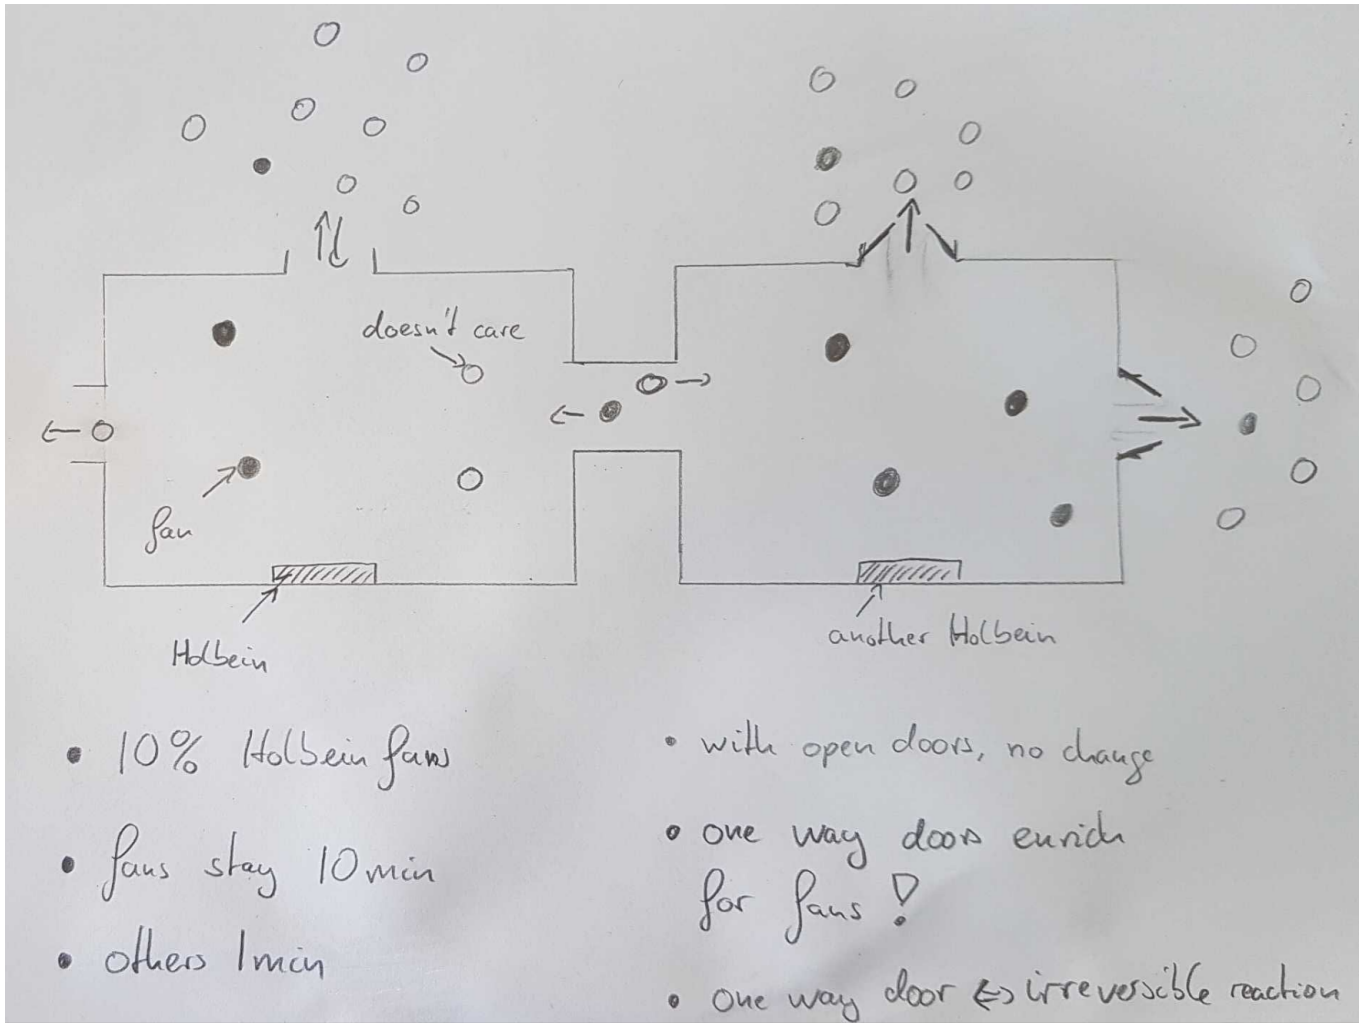 doesn't care
fan
Holbein
another Holbein
• 10% Holbein fans
• fans stay 10 min
• others 1 min
• with open doors, no change
• one way doors enrich
for fans !
• one way door <=> irreversible reaction